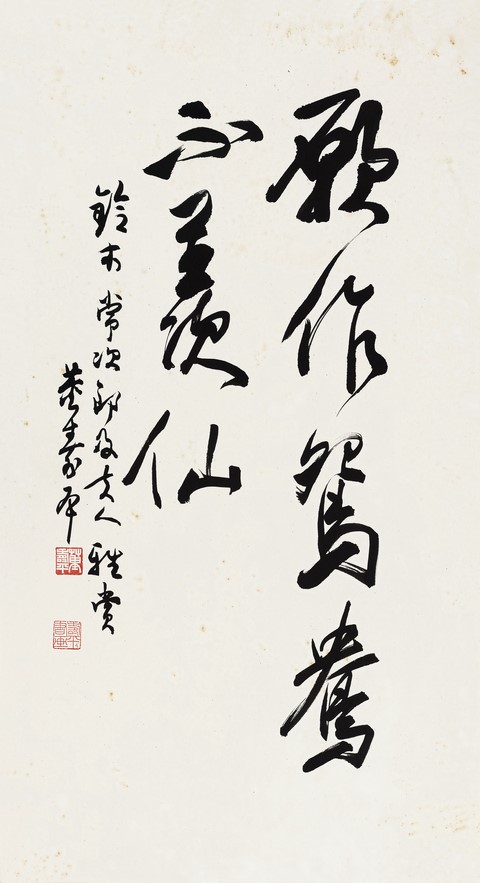 願作鴛鴦
不羨仙
鈴木常次郎及夫人雅賞
董壽平